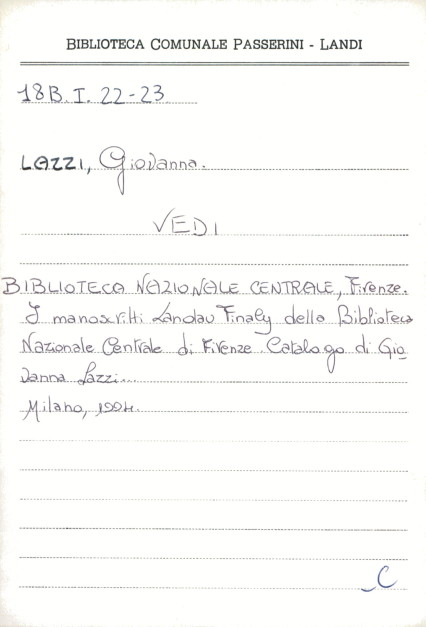 BIBLIOTECA COMUNALE PASSERINI - LANDI
18B. I. 22-23
LAZZI, Giovanna.
VEDI
BIBLIOTECA NAZIONALE CENTRALE, Firenze.
I manoscritti Landau Finaly della Biblioteca
Nazionale Centrale di Firenze. Catalogo di Gio
vanna Lazzi...
Milano, 1994.
C